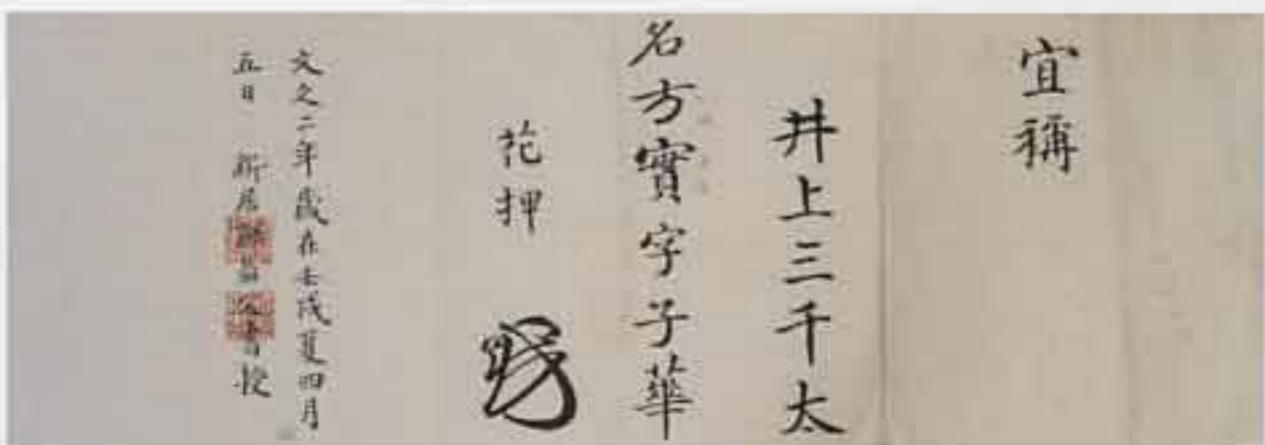 宜稱
井上三千太
名方實字子華
花押
文久二年歲在壬戌夏四月
五日 書授